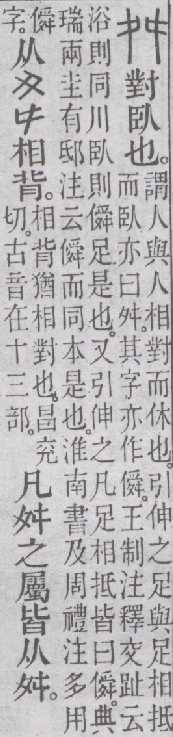 舛對臥也。謂人與人相對而休也。引伸之足與足相抵
而臥亦曰舛。其字亦作僢。王制注釋交趾云
浴則同川臥則僢足是也。又引伸之凡足相抵皆曰僢。典
瑞兩圭有邸注云僢而同本是也。淮南書及周禮注多用
僢
字。
从夊㐄相背。
相背猶相對也。昌兖
切。古音在十三部。
凡舛之屬皆从舛。